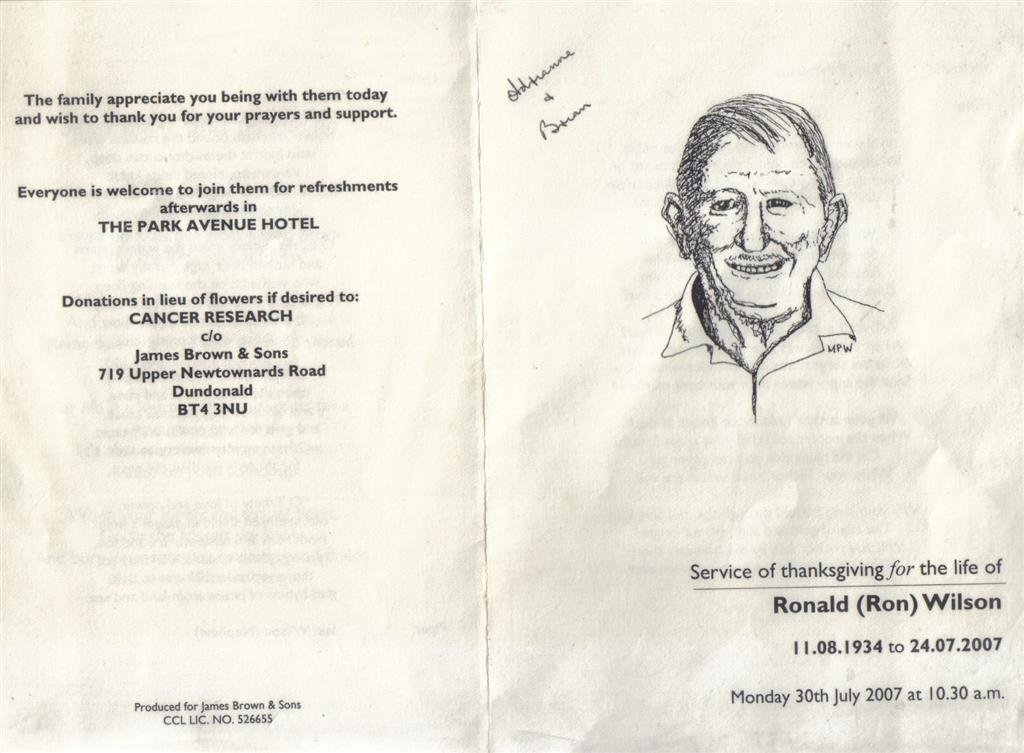 The family appreciate you being with them today
and wish to thank you for your prayers and support.
Everyone is welcome to join them for refreshments
afterwards in
THE PARK AVENUE HOTEL
Donations in lieu of flowers if desired to:
CANCER RESEARCH
c/o
James Brown & Sons
719 Upper Newtownards Road
Dundonald
BT4 3NU
Produced for James Brown & Sons
CCL LIC. NO. 526655
Adrianne
&
Brian
MPW
Service of thanksgiving for the life of
Ronald (Ron) Wilson
11.08.1934 to 24.07.2007
Monday 30th July 2007 at 10.30 a.m.